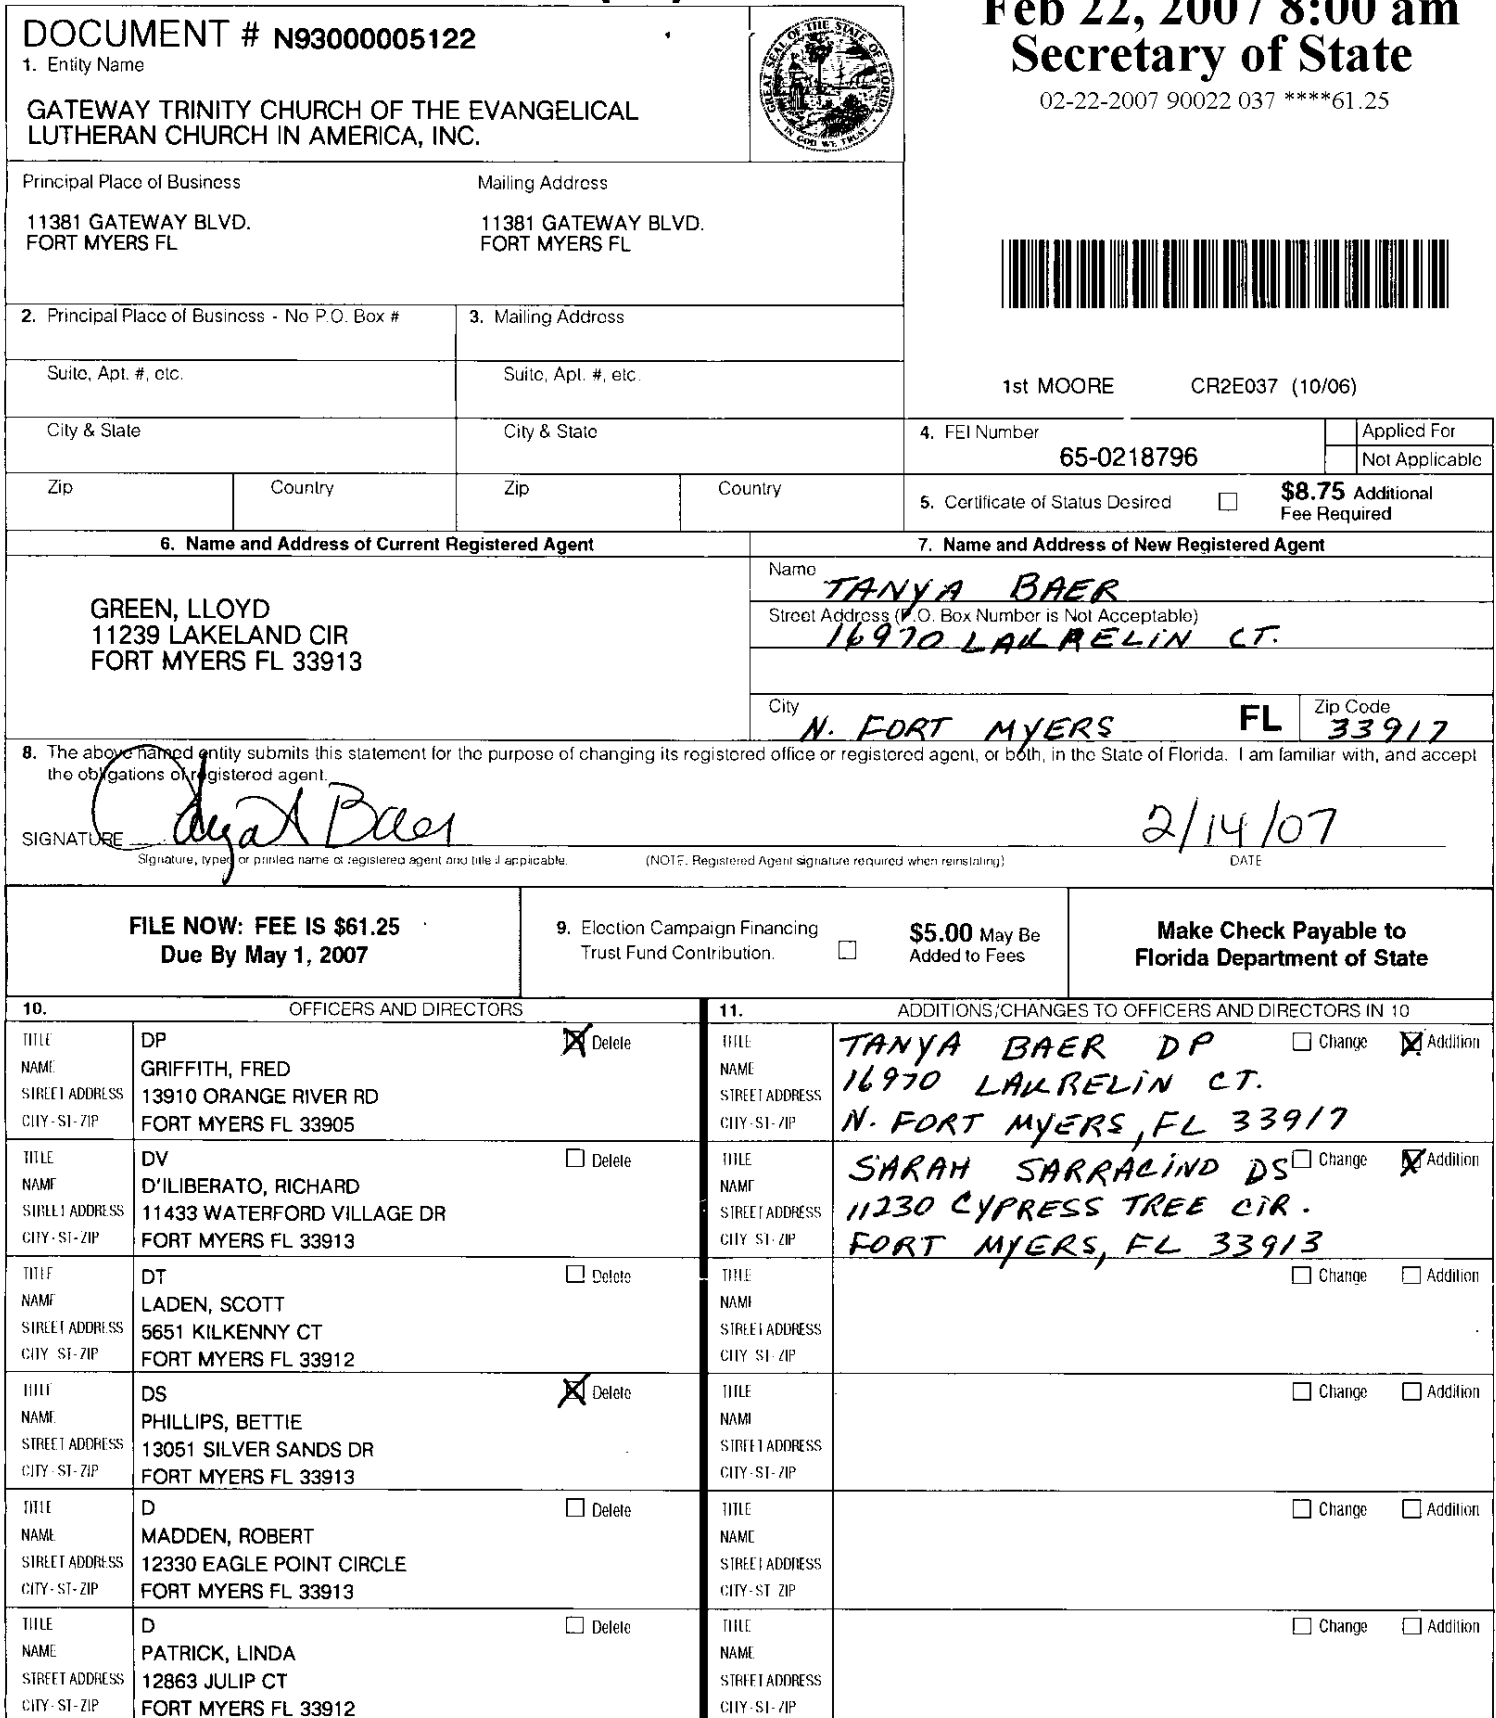 Feb 22, 2007 8:00 am
Secretary of State
02-22-2007 90022 037 ****61.25
DOCUMENT # N93000005122
1. Entity Name
GATEWAY TRINITY CHURCH OF THE EVANGELICAL
LUTHERAN CHURCH IN AMERICA, INC.
GREAT SEAL OF THE STATE OF FLORIDA
IN GOD WE TRUST
Principal Place of Business
11381 GATEWAY BLVD.
FORT MYERS FL
Mailing Address
11381 GATEWAY BLVD.
FORT MYERS FL
2. Principal Place of Business - No P.O. Box #
3. Mailing Address
Suite, Apt. #, etc.
Suite, Apt. #, etc.
1st MOORE CR2E037 (10/06)
City & State
City & State
4. FEI Number
65-0218796
Applied For
Not Applicable
Zip
Country
Zip
Country
5. Certificate of Status Desired
$8.75 Additional
Fee Required
6. Name and Address of Current Registered Agent
GREEN, LLOYD
11239 LAKELAND CIR
FORT MYERS FL 33913
7. Name and Address of New Registered Agent
Name
TANYA BAER
Street Address (P.O. Box Number is Not Acceptable)
16970 LAURELIN CT.
City
N. FORT MYERS
FL
Zip Code
33917
8. The above named entity submits this statement for the purpose of changing its registered office or registered agent, or both, in the State of Florida. I am familiar with, and accept
the obligations of registered agent.
SIGNATURE
Baer
2/14/07
Signature, typed or printed name of registered agent and title if applicable.
(NOTE: Registered Agent signature required when reinstating)
DATE
FILE NOW: FEE IS $61.25
Due By May 1, 2007
9. Election Campaign Financing
Trust Fund Contribution.
$5.00 May Be
Added to Fees
Make Check Payable to
Florida Department of State
10. OFFICERS AND DIRECTORS
TITLE DP Delete
NAME GRIFFITH, FRED
STREET ADDRESS 13910 ORANGE RIVER RD
CITY-ST-ZIP FORT MYERS FL 33905
TITLE DV Delete
NAME D'ILIBERATO, RICHARD
STREET ADDRESS 11433 WATERFORD VILLAGE DR
CITY-ST-ZIP FORT MYERS FL 33913
TITLE DT Delete
NAME LADEN, SCOTT
STREET ADDRESS 5651 KILKENNY CT
CITY-ST-ZIP FORT MYERS FL 33912
TITLE DS Delete
NAME PHILLIPS, BETTIE
STREET ADDRESS 13051 SILVER SANDS DR
CITY-ST-ZIP FORT MYERS FL 33913
TITLE D Delete
NAME MADDEN, ROBERT
STREET ADDRESS 12330 EAGLE POINT CIRCLE
CITY-ST-ZIP FORT MYERS FL 33913
TITLE D Delete
NAME PATRICK, LINDA
STREET ADDRESS 12863 JULIP CT
CITY-ST-ZIP FORT MYERS FL 33912
11. ADDITIONS/CHANGES TO OFFICERS AND DIRECTORS IN 10
TITLE TANYA BAER DP Change Addition
NAME 16970 LAURELIN CT.
STREET ADDRESS
CITY-ST-ZIP N. FORT MYERS, FL 33917
TITLE SARAH SARRACIND DS Change Addition
NAME
STREET ADDRESS 11230 CYPRESS TREE CIR.
CITY-ST-ZIP FORT MYERS, FL 33913
TITLE Change Addition
NAME
STREET ADDRESS
CITY-ST-ZIP
TITLE Change Addition
NAME
STREET ADDRESS
CITY-ST-ZIP
TITLE Change Addition
NAME
STREET ADDRESS
CITY-ST-ZIP
TITLE Change Addition
NAME
STREET ADDRESS
CITY-ST-ZIP